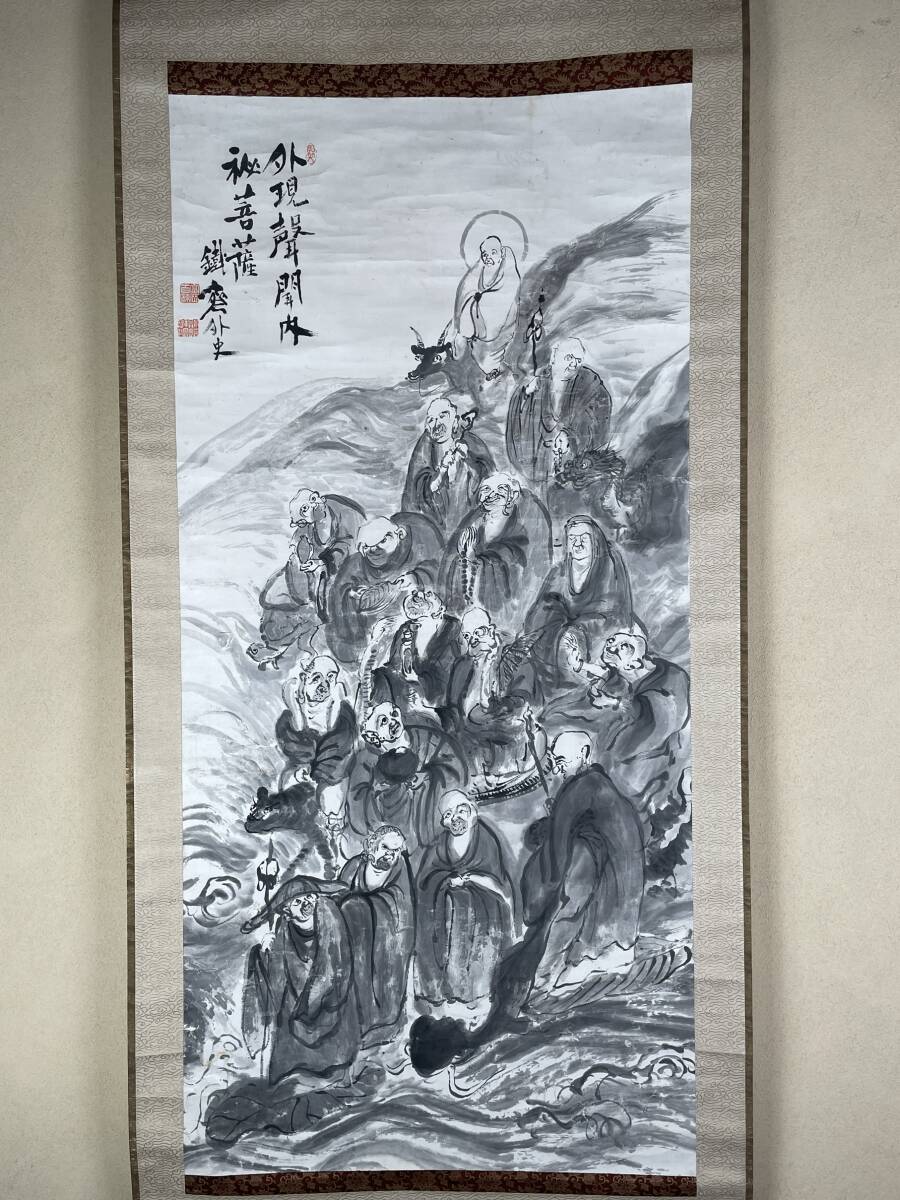 外現聲聞内
祕菩薩
鐵齋外史